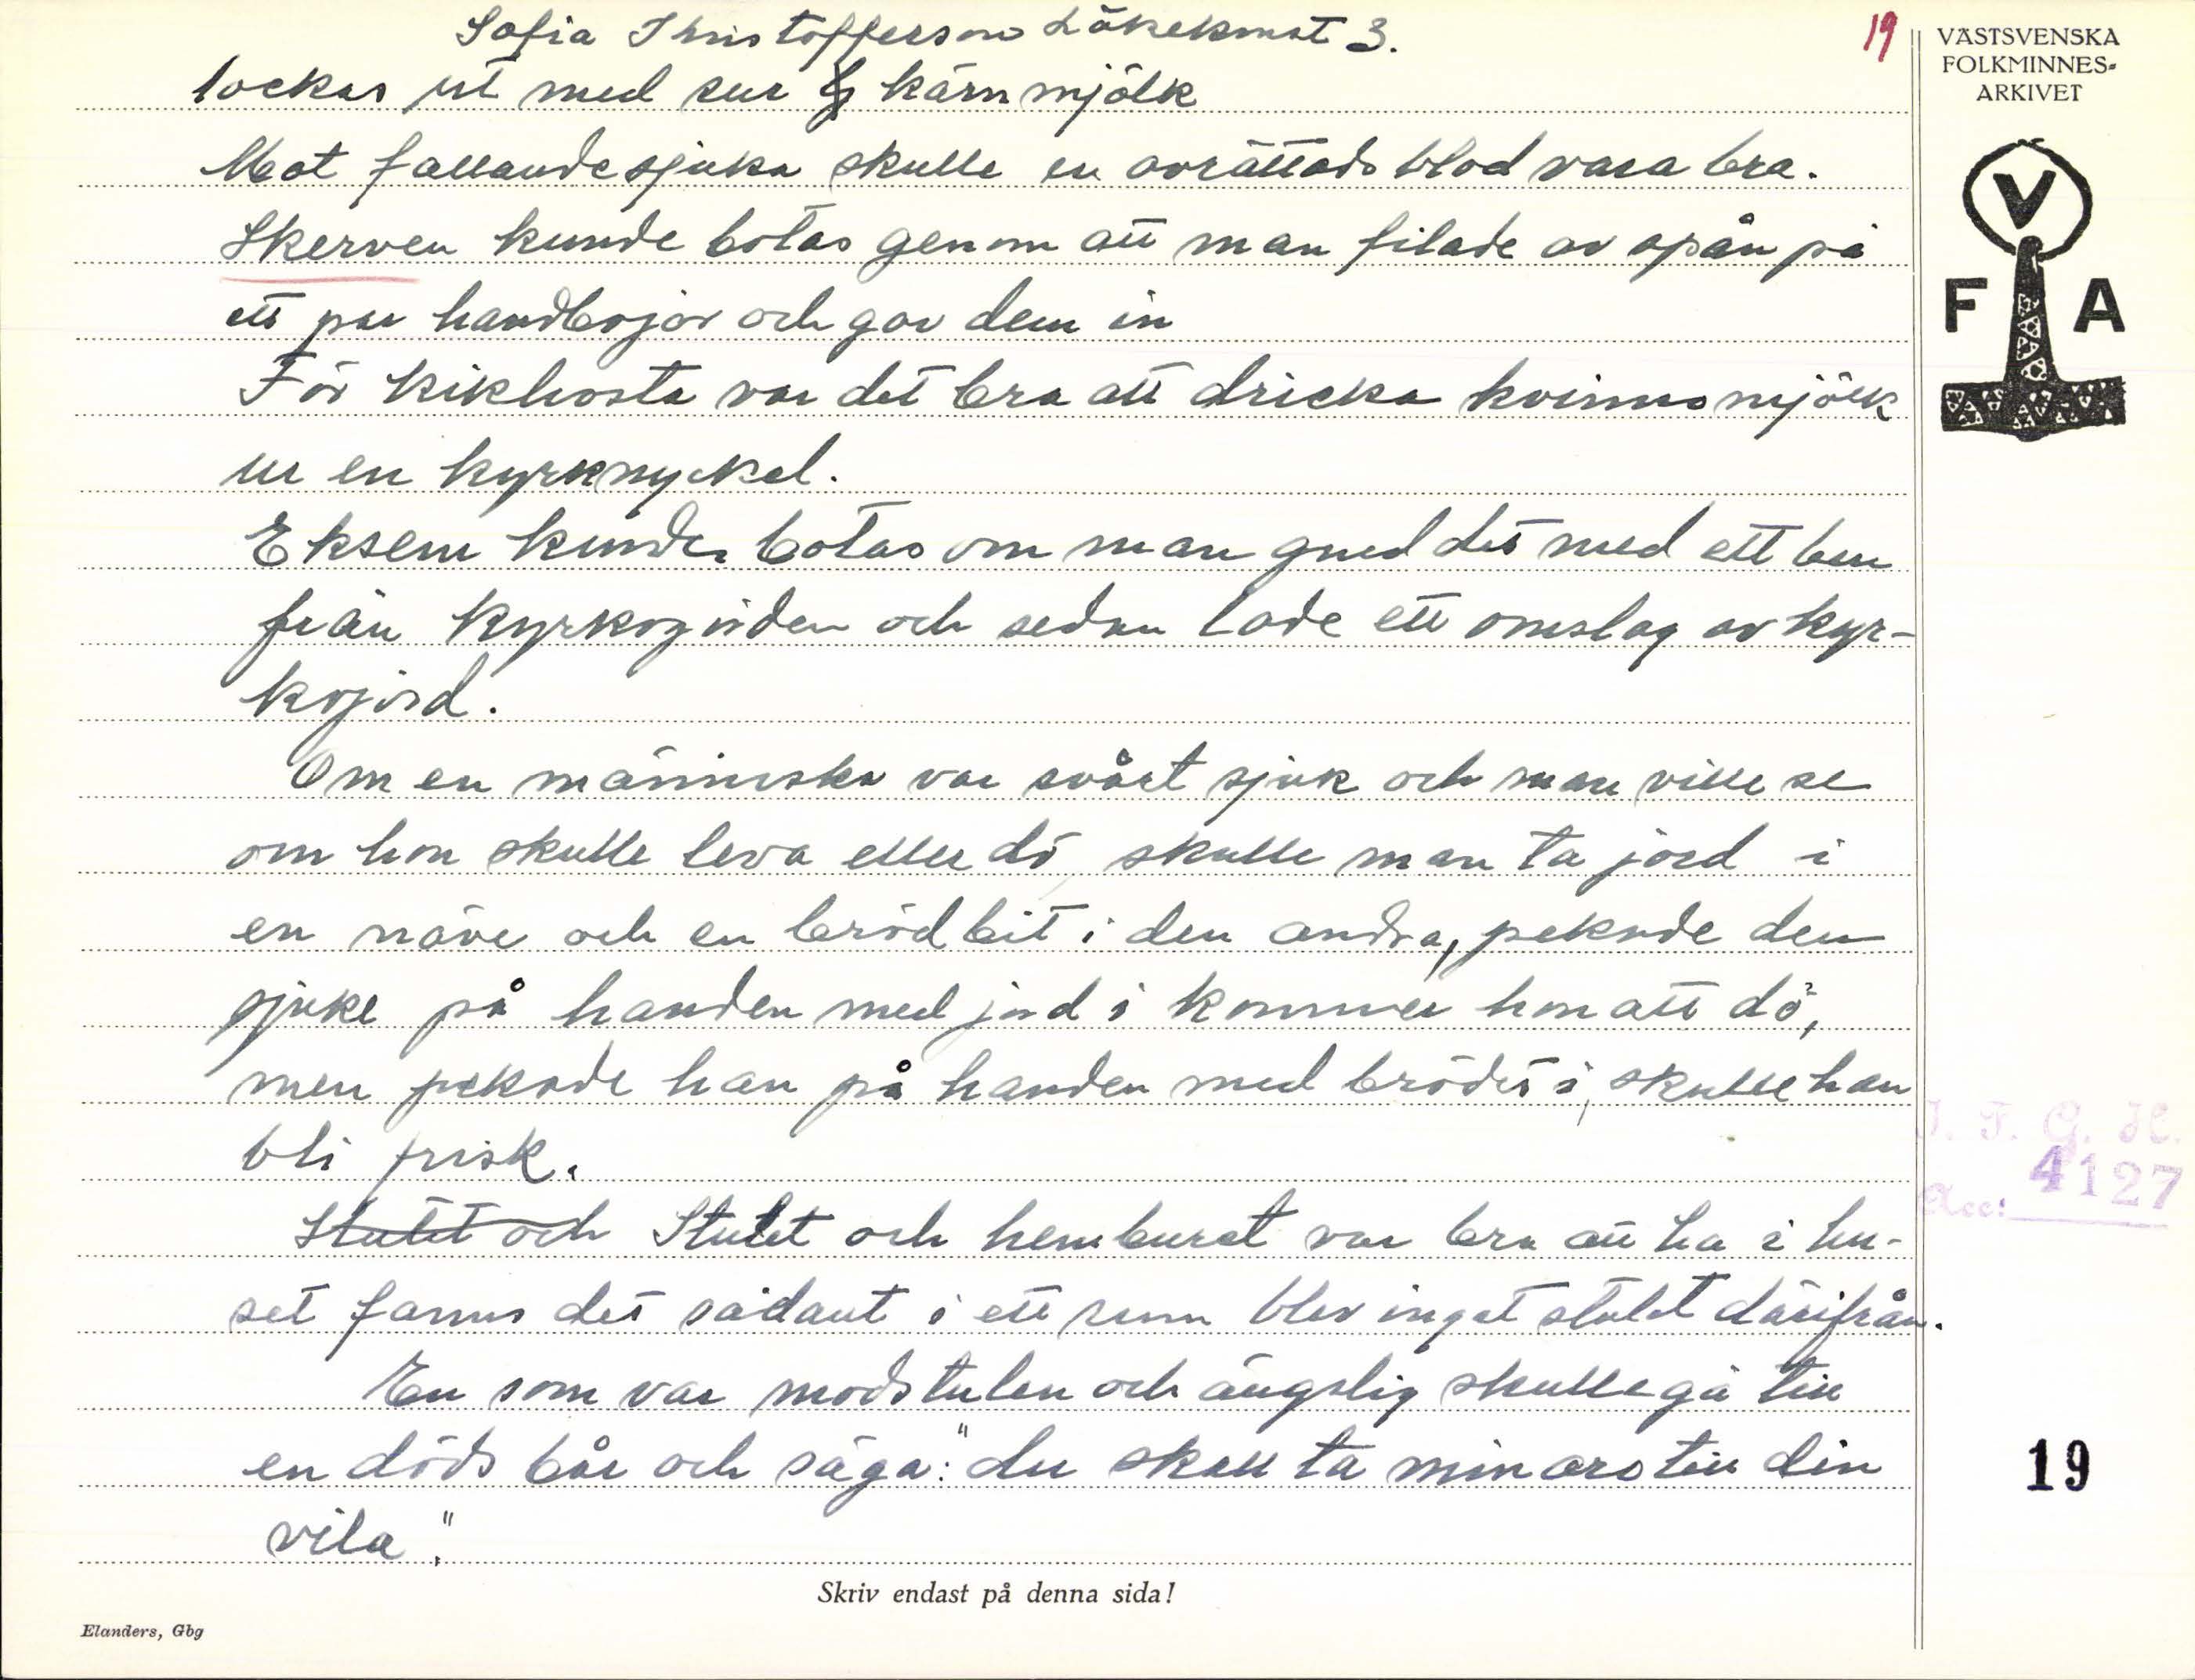 Sofia Khristofferson Läkekonst 3.
19
VÄSTSVENSKA
FOLKMINNES-
ARKIVET
V
F A
lockas ut med sur kärnmjölk
Mot fallandesjuka skulle en avrättads blod vara bra.
Skerven kunde botas genom att man filade av spån på
ett par handbojor och gav dem in
För kikhosta var det bra att dricka kvinnomjölk
ur en kyrknyckel.
Eksem kunde botas om man gned det med ett ben
från kyrkogården och sedan lade ett omslag av kyr-
kojord.
Om en människa var svårt sjuk och man ville se
om hon skulle leva eller dö, skulle man ta jord i
en näve och en brödbit i den andra, pekade den
sjuke på handen med jord i kommer hon att dö,
men pekade han på handen med brödet i, skulle han
bli frisk.
Stulet och Stulet och hemburet var bra att ha i hu-
set fanns det sådant i ett rum blev inget stulet därifrån.
En som var modstulen och ängslig skulle gå till
en döds bår och säga: "du skall ta min oro till din
vila".
I. F. G. H.
Acc: 4127
19
Skriv endast på denna sida!
Elanders, Gbg